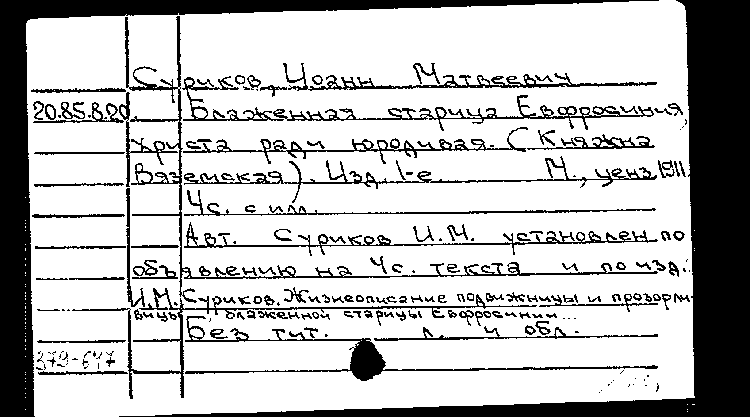 Суриков, Иоанн Матвеевич
20.85.8.20. Блаженная старица Евфросиния,
Христа ради юродивая. (Княжна
Вяземская). Изд. 1-е М., ценз 1911
4с. с илл.
Авт. Суриков И.М. установлен по
объявлению на 4с. текста и по изд.:
И.М. Суриков. Жизнеописание подвижницы и прозорли-
вицы, блаженной старицы Евфросинии...
Без тит. л. и обл.
379-647